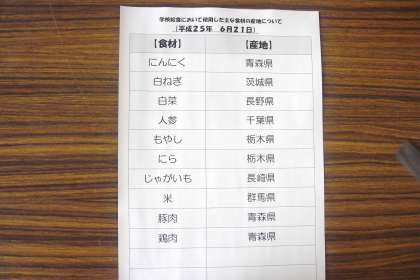 学校給食において使用した主な食材の産地について
(平成25年 6月21日)
【食材】 【産地】
にんにく 青森県
白ねぎ 茨城県
白菜 長野県
人参 千葉県
もやし 栃木県
にら 栃木県
じゃがいも 長崎県
米 群馬県
豚肉 青森県
鶏肉 青森県